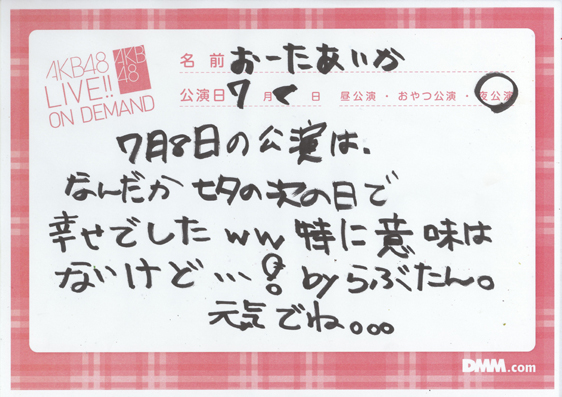 AKB48
LIVE!!
ON DEMAND
AKB
48
名前 おーたあいか
公演日 7月く日 昼公演・おやつ公演・夜公演
7月8日の公演は、
なんだか七夕の次の日で
幸せでしたww 特に意味は
ないけど…! byらぶたん。
元気でね。。。
DMM.com